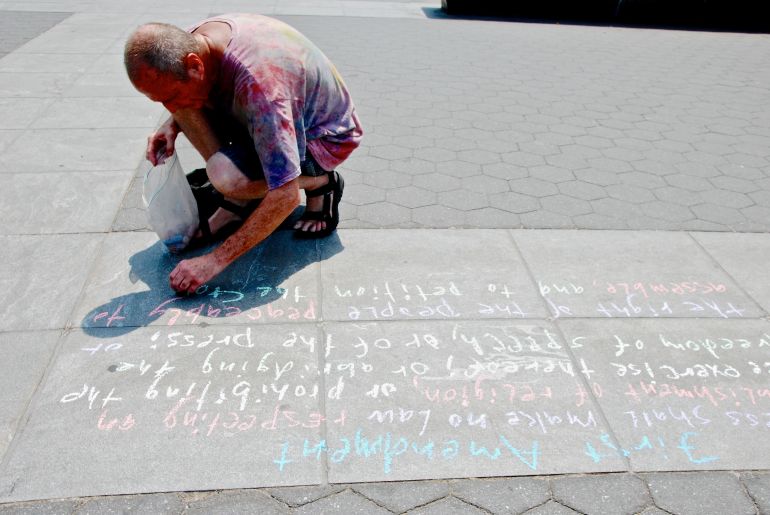 First Amendment
ess shall make no law respecting an
lishment of religion, or prohibiting the
e exercise thereof, or abridging the
reedom of speech, or of the press; or
the right of the people peaceably to
assemble, and to petition the